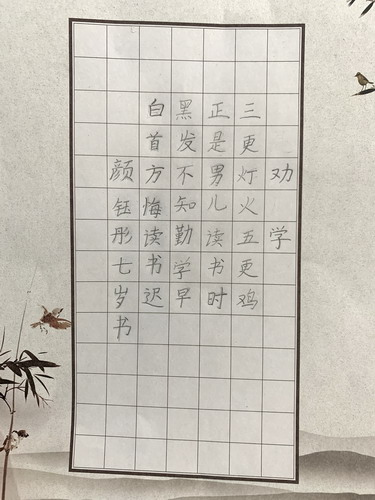 劝学
三更灯火五更鸡
正是男儿读书时
黑发不知勤学早
白首方悔读书迟
颜钰彤七岁书